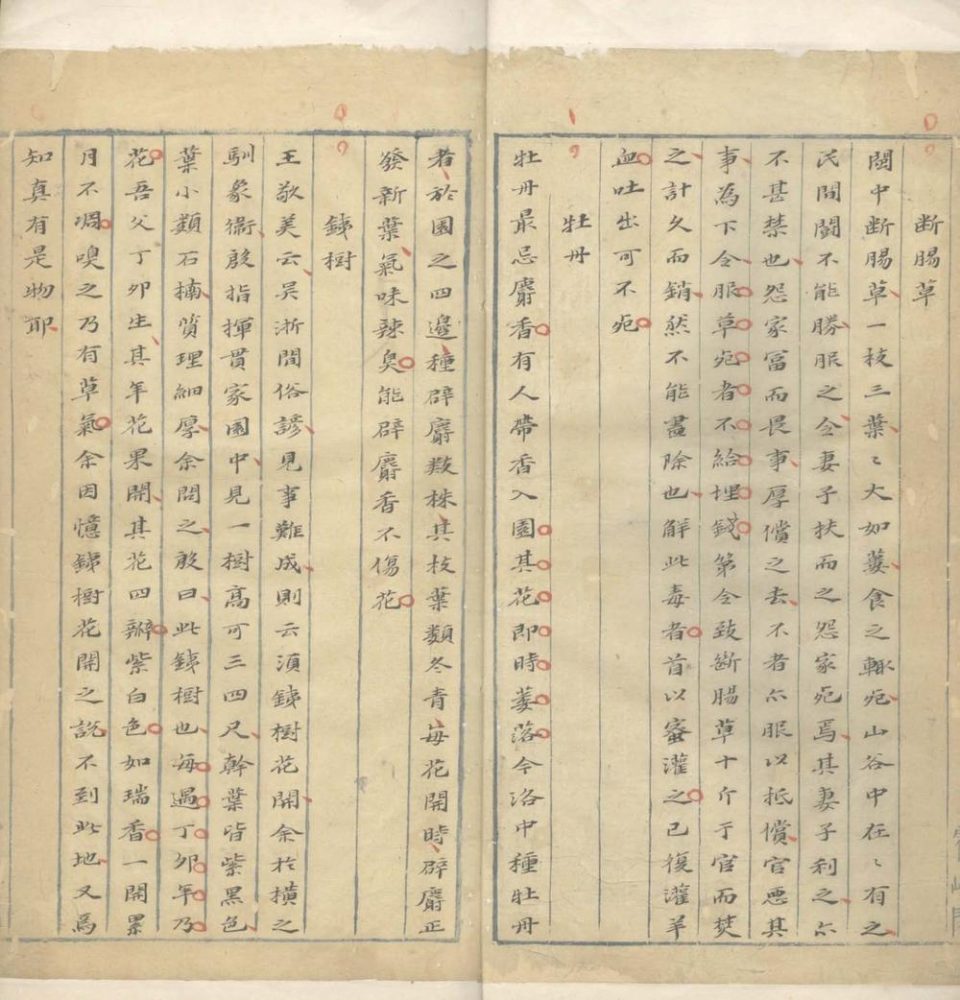 断腸草
閩中断腸草一枝三葉〻大如蔞食之輙死山谷中在〻有之
民間鬪不能勝服之令妻子扶而之怨家死焉其妻子利之亦
不甚禁也怨家富而畏事厚償之去不者亦服以抵償官悪其
事為下令服草死者不給埋錢第令致断腸草十斤于官而焚
之計久而銷然不能盡除也解此毒者首以蜜灌之已復灌羊
血吐出可不死
牡丹
牡丹最忌麝香有人帶香入園其花即時萎落今洛中種牡丹
者於園之四邉種辟麝数株其枝葉類冬青每花開時辟麝正
發新葉氣味辣臭能辟麝香不傷花
銕樹
王敬美云吴浙間俗諺見事難成則云湏銕樹花開余於横之
馴象衞殷指揮貫家園中見一樹高可三四尺幹葉皆紫黑色
葉小類石楠質理細厚余問之殷曰此銕樹也每過丁夘年乃
花吾父丁夘生其年花果開其花四瓣紫白色如瑞香一開累
月不凋嗅之乃有草氣余因憶銕樹花開之説不到此地又焉
知真有是物耶